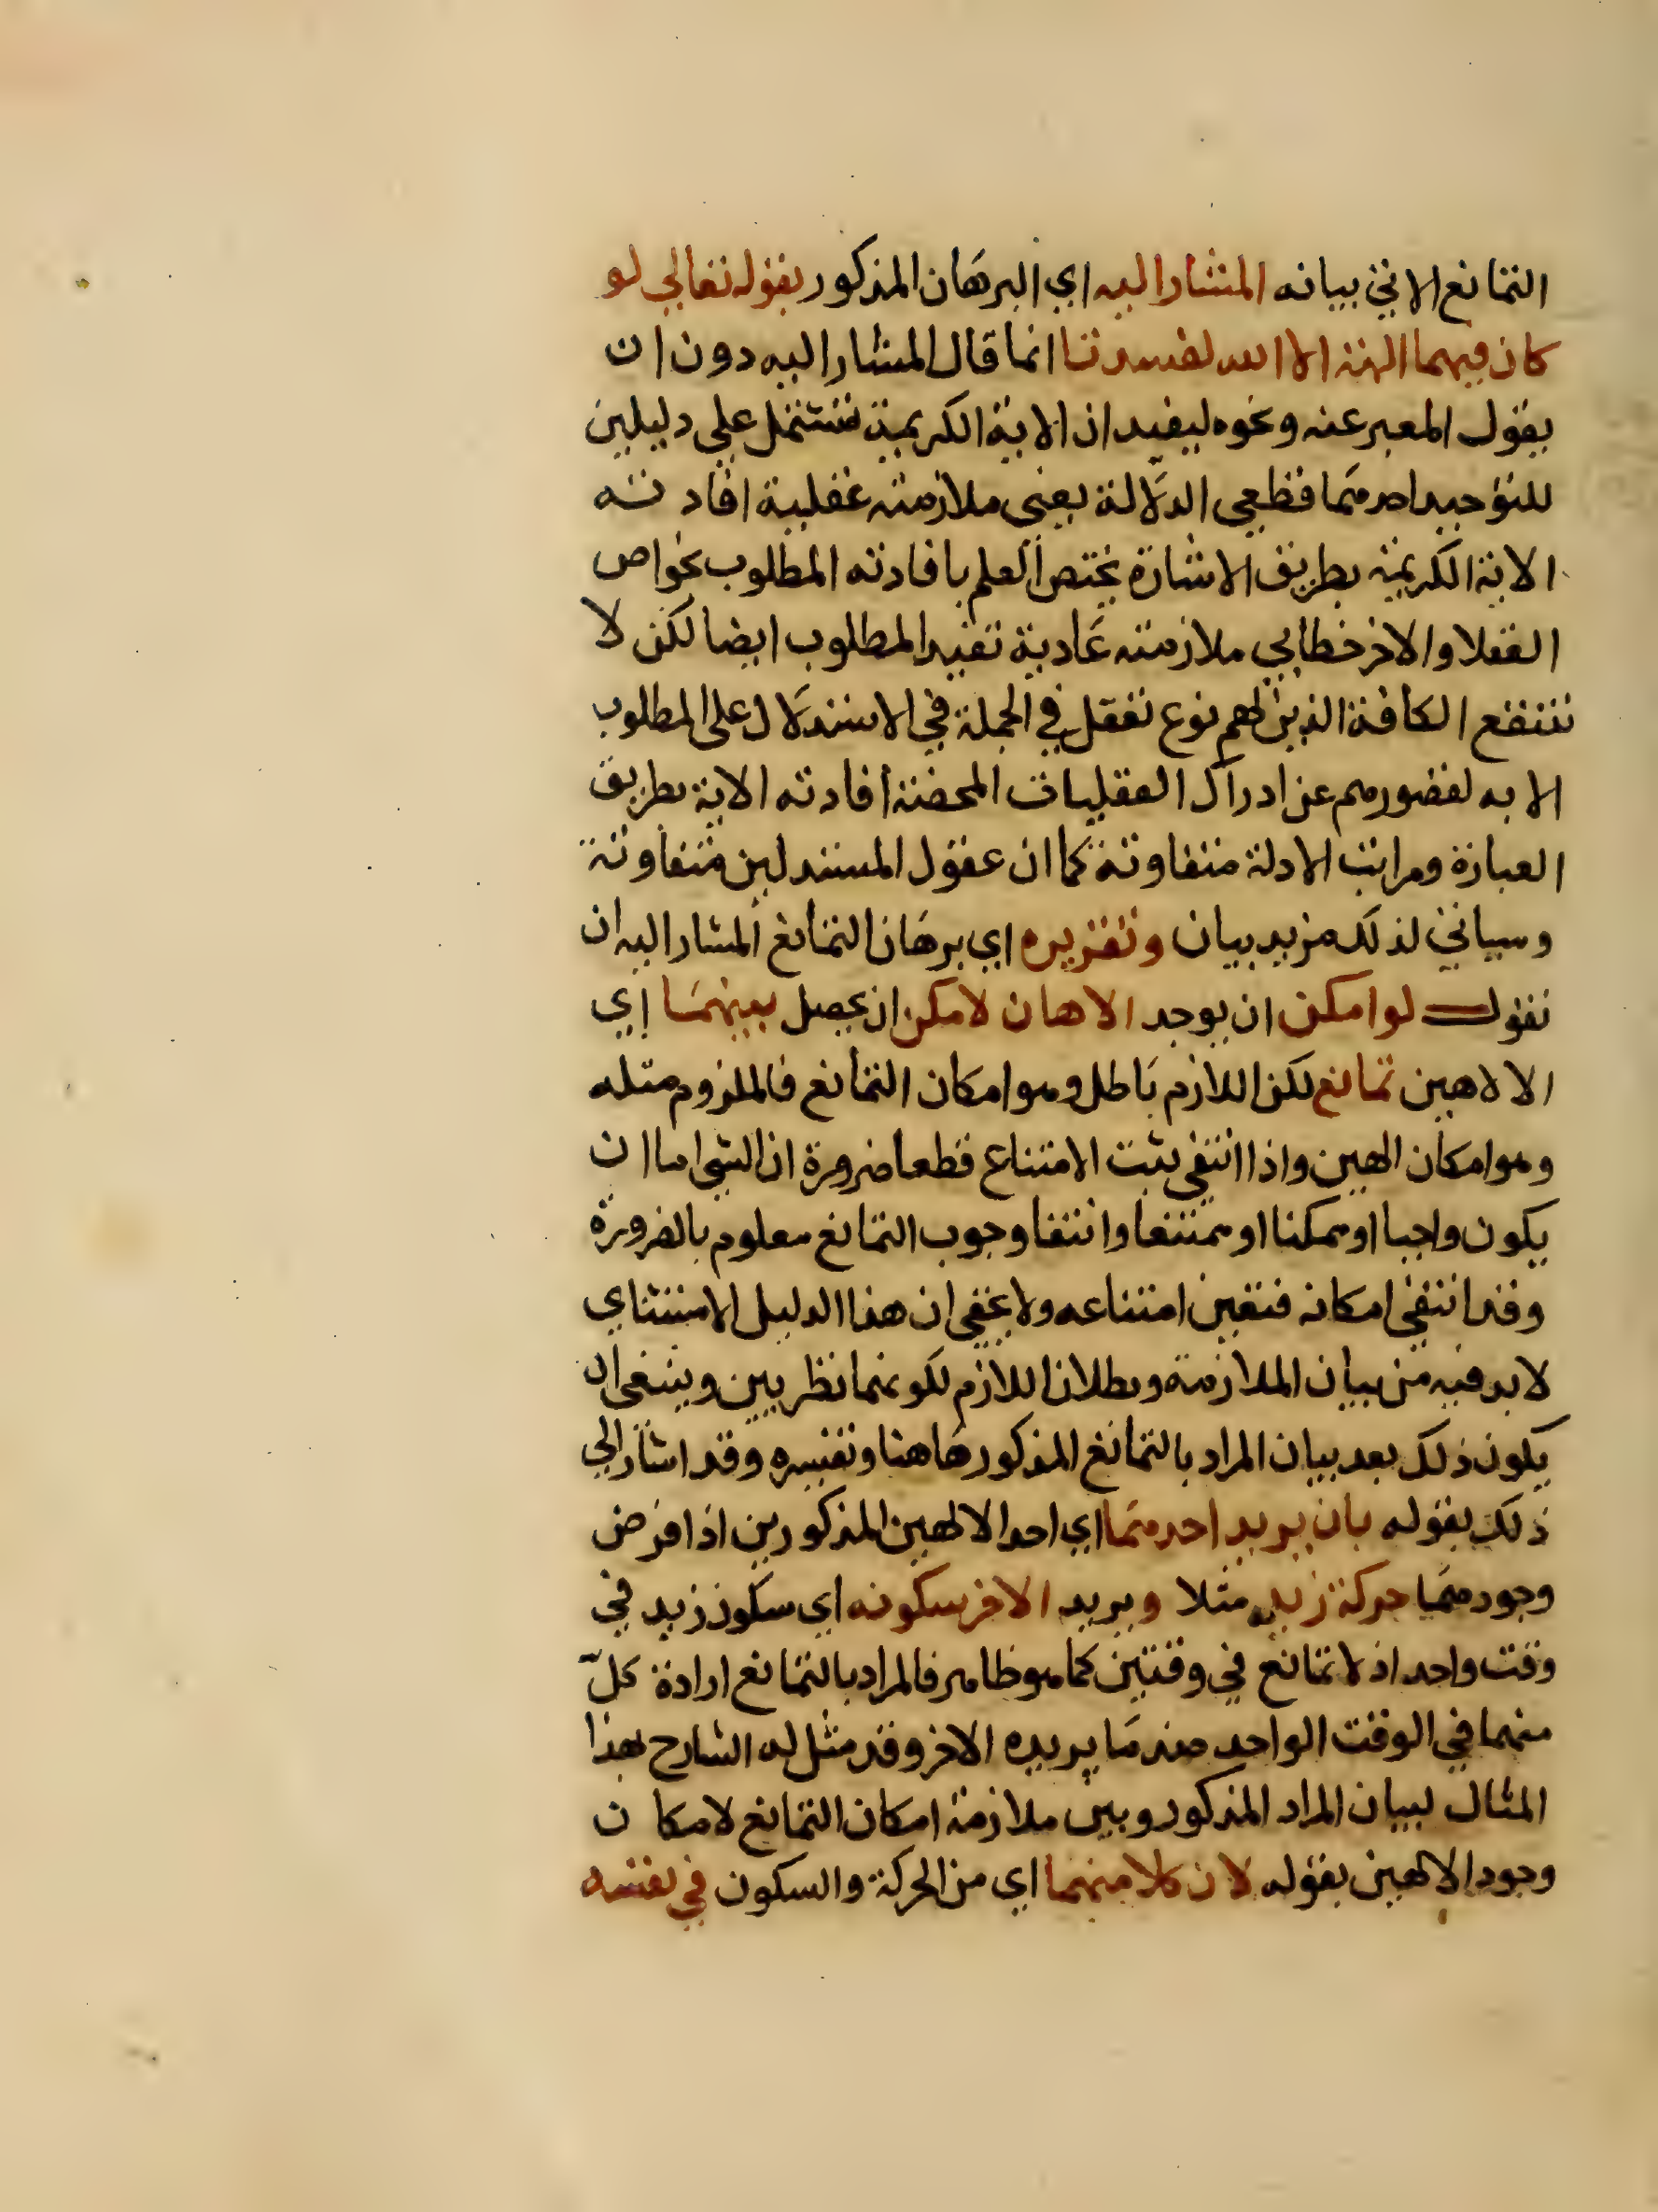 التمانع الاتي بيانه المشار اليه اي البرهان المذكور بقوله تعالي لو
كان فيهما الهة الا الله لفسدتا انما قال المشار اليه دون ان
يقول المعبر عنه ونحوه ليفيد ان الاية الكريمة تشتمل علي دليلين
للتوحيد احدهما قطعي الدلالة يعني ملازمته عقلية افادته
الاية الكريمة بطريق الاشارة يختص العلم بافادته المطلوب بخواص
العقلا والاخر خطابي ملازمته عادية تفيد المطلوب ايضا لكن لا
تنتفع الكافة الذين لهم نوع تعقل في الجملة في الاستدلال على المطلوب
الا به لقصورهم عن ادراك العقليات المحضة افادته الاية بطريق
العبارة ومراتب الادلة متفاوتة كما ان عقول المستدلين متفاوتة
وسياتي لذلك مزيد بيان وتقريره اي برهان التمانع المشار اليه ان
نقول لو امكن ان يوجد الاهان لامكن ان يحصل بينهما اي
الالاهين تمانع لكن اللازم باطل وهو امكان التمانع فالملزوم مثله
وهو امكان الهين واذا انتفي ثبت الامتناع قطعا ضرورة ان الشي اما ان
يكون واجبا او ممكنا او ممتنعا وانتفا وجوب التمانع معلوم بالضرورة
وقد انتفي امكانه فتعين امتناعه ولا يخفي ان هذا الدليل الاستثناي
لا بد فيه من بيان الملازمة وبطلان اللازم لكونهما نظريين وينبغي ان
يكون ذلك بعد بيان المراد بالتمانع المذكور هاهنا وتفسيره وقد اشار الي
ذلك بقوله بان يريد احدهما اي احد الالهين المذكورين اذا فرض
وجودهما حركة زيد مثلا ويريد الاخر سكونه اي سكون زيد في
وقت واحد اذ لا تمانع في وقتين كما هو ظاهر فالمراد بالتمانع ارادة كلّ
منهما في الوقت الواحد ضد ما يريده الاخر وقد مثل له الشارح بهذا
المثال لبيان المراد المذكور وبين ملازمة امكان التمانع لامكان
وجود الالهين بقوله لان كلا منهما اي من الحركة والسكون في نفسه